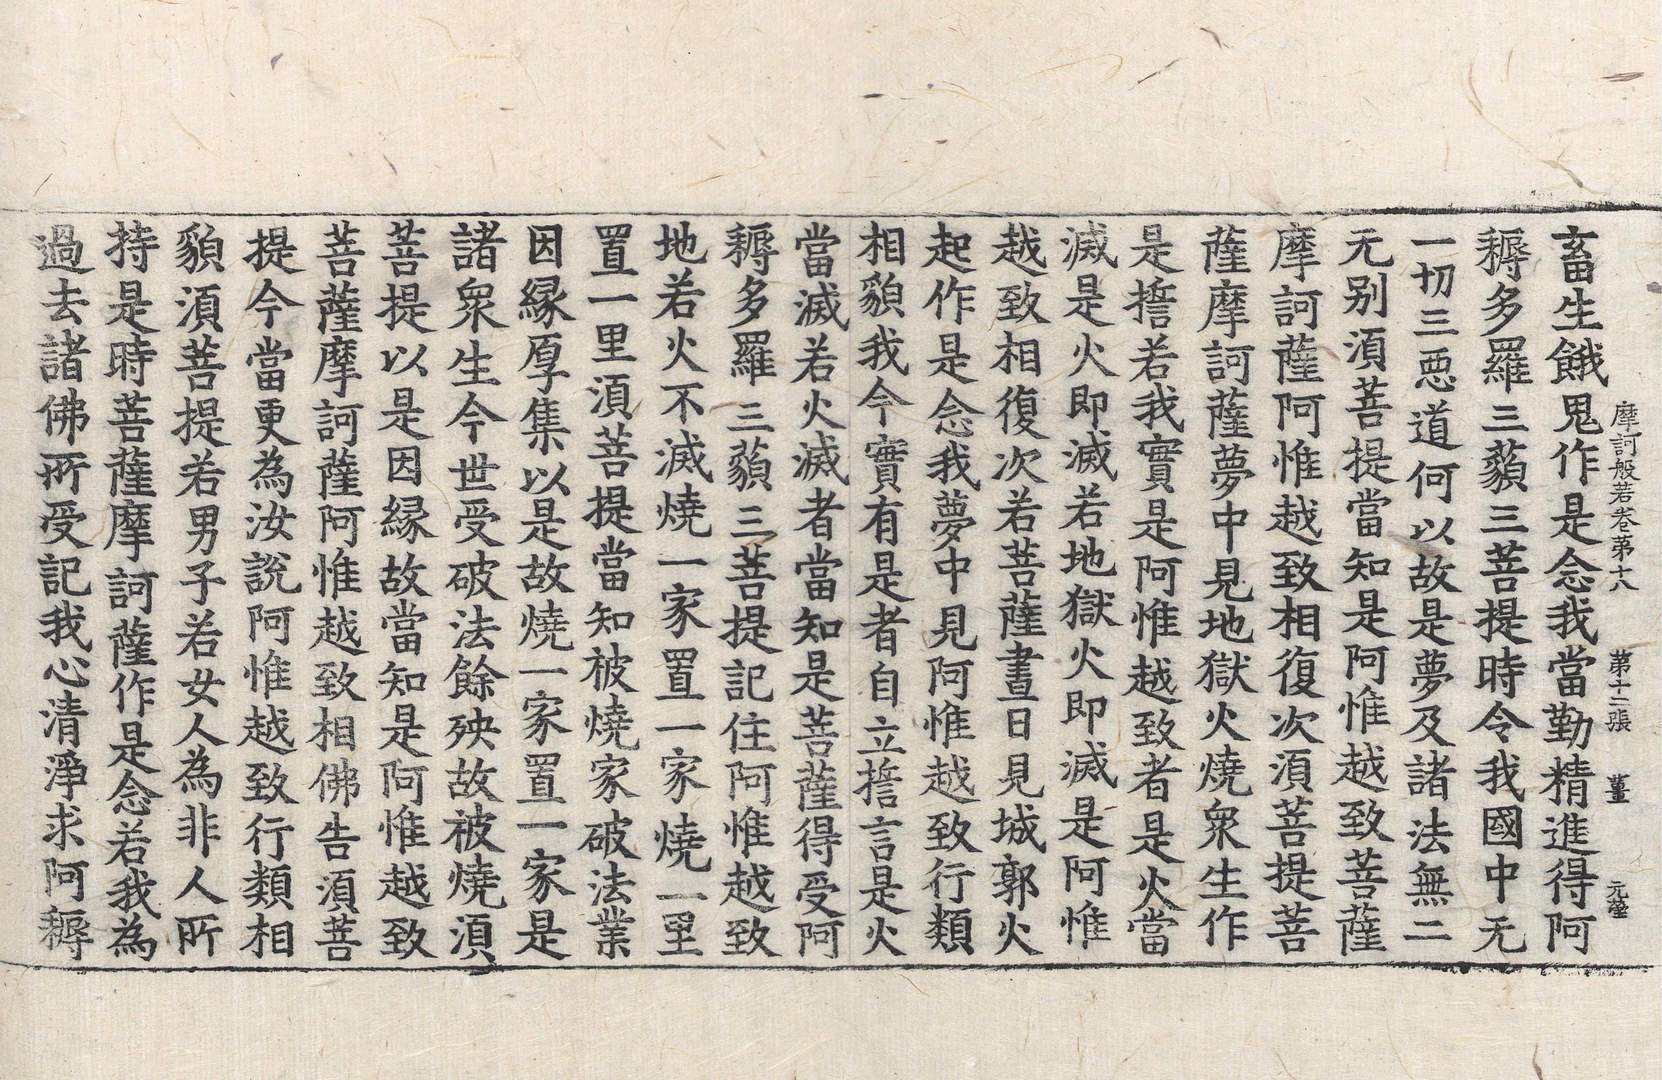 摩訶般若卷第十八　第十二張　薑　元瑩
畜生餓鬼作是念我當勤精進得阿
耨多羅三藐三菩提時令我國中无
一切三惡道何以故是夢及諸法無二
无别湏菩提當知是阿惟越致菩薩
摩訶薩阿惟越致相復次湏菩提菩
薩摩訶薩夢中見地獄火燒衆生作
是誓若我實是阿惟越致者是火當
滅是火即滅若地獄火即滅是阿惟
越致相復次若菩薩晝日見城郭火
起作是念我夢中見阿惟越致行類
相貌我今實有是者自立誓言是火
當滅若火滅者當知是菩薩得受阿
耨多羅三藐三菩提記住阿惟越致
地若火不滅燒一家置一家燒一里
置一里湏菩提當知被燒家破法業
因緣厚集以是故燒一家置一家是
諸衆生今世受破法餘殃故被燒湏
菩提以是因緣故當知是阿惟越致
菩薩摩訶薩阿惟越致相佛告湏菩
提今當更為汝說阿惟越致行類相
貌湏菩提若男子若女人為非人所
持是時菩薩摩訶薩作是念若我為
過去諸佛所受記我心清淨求阿耨